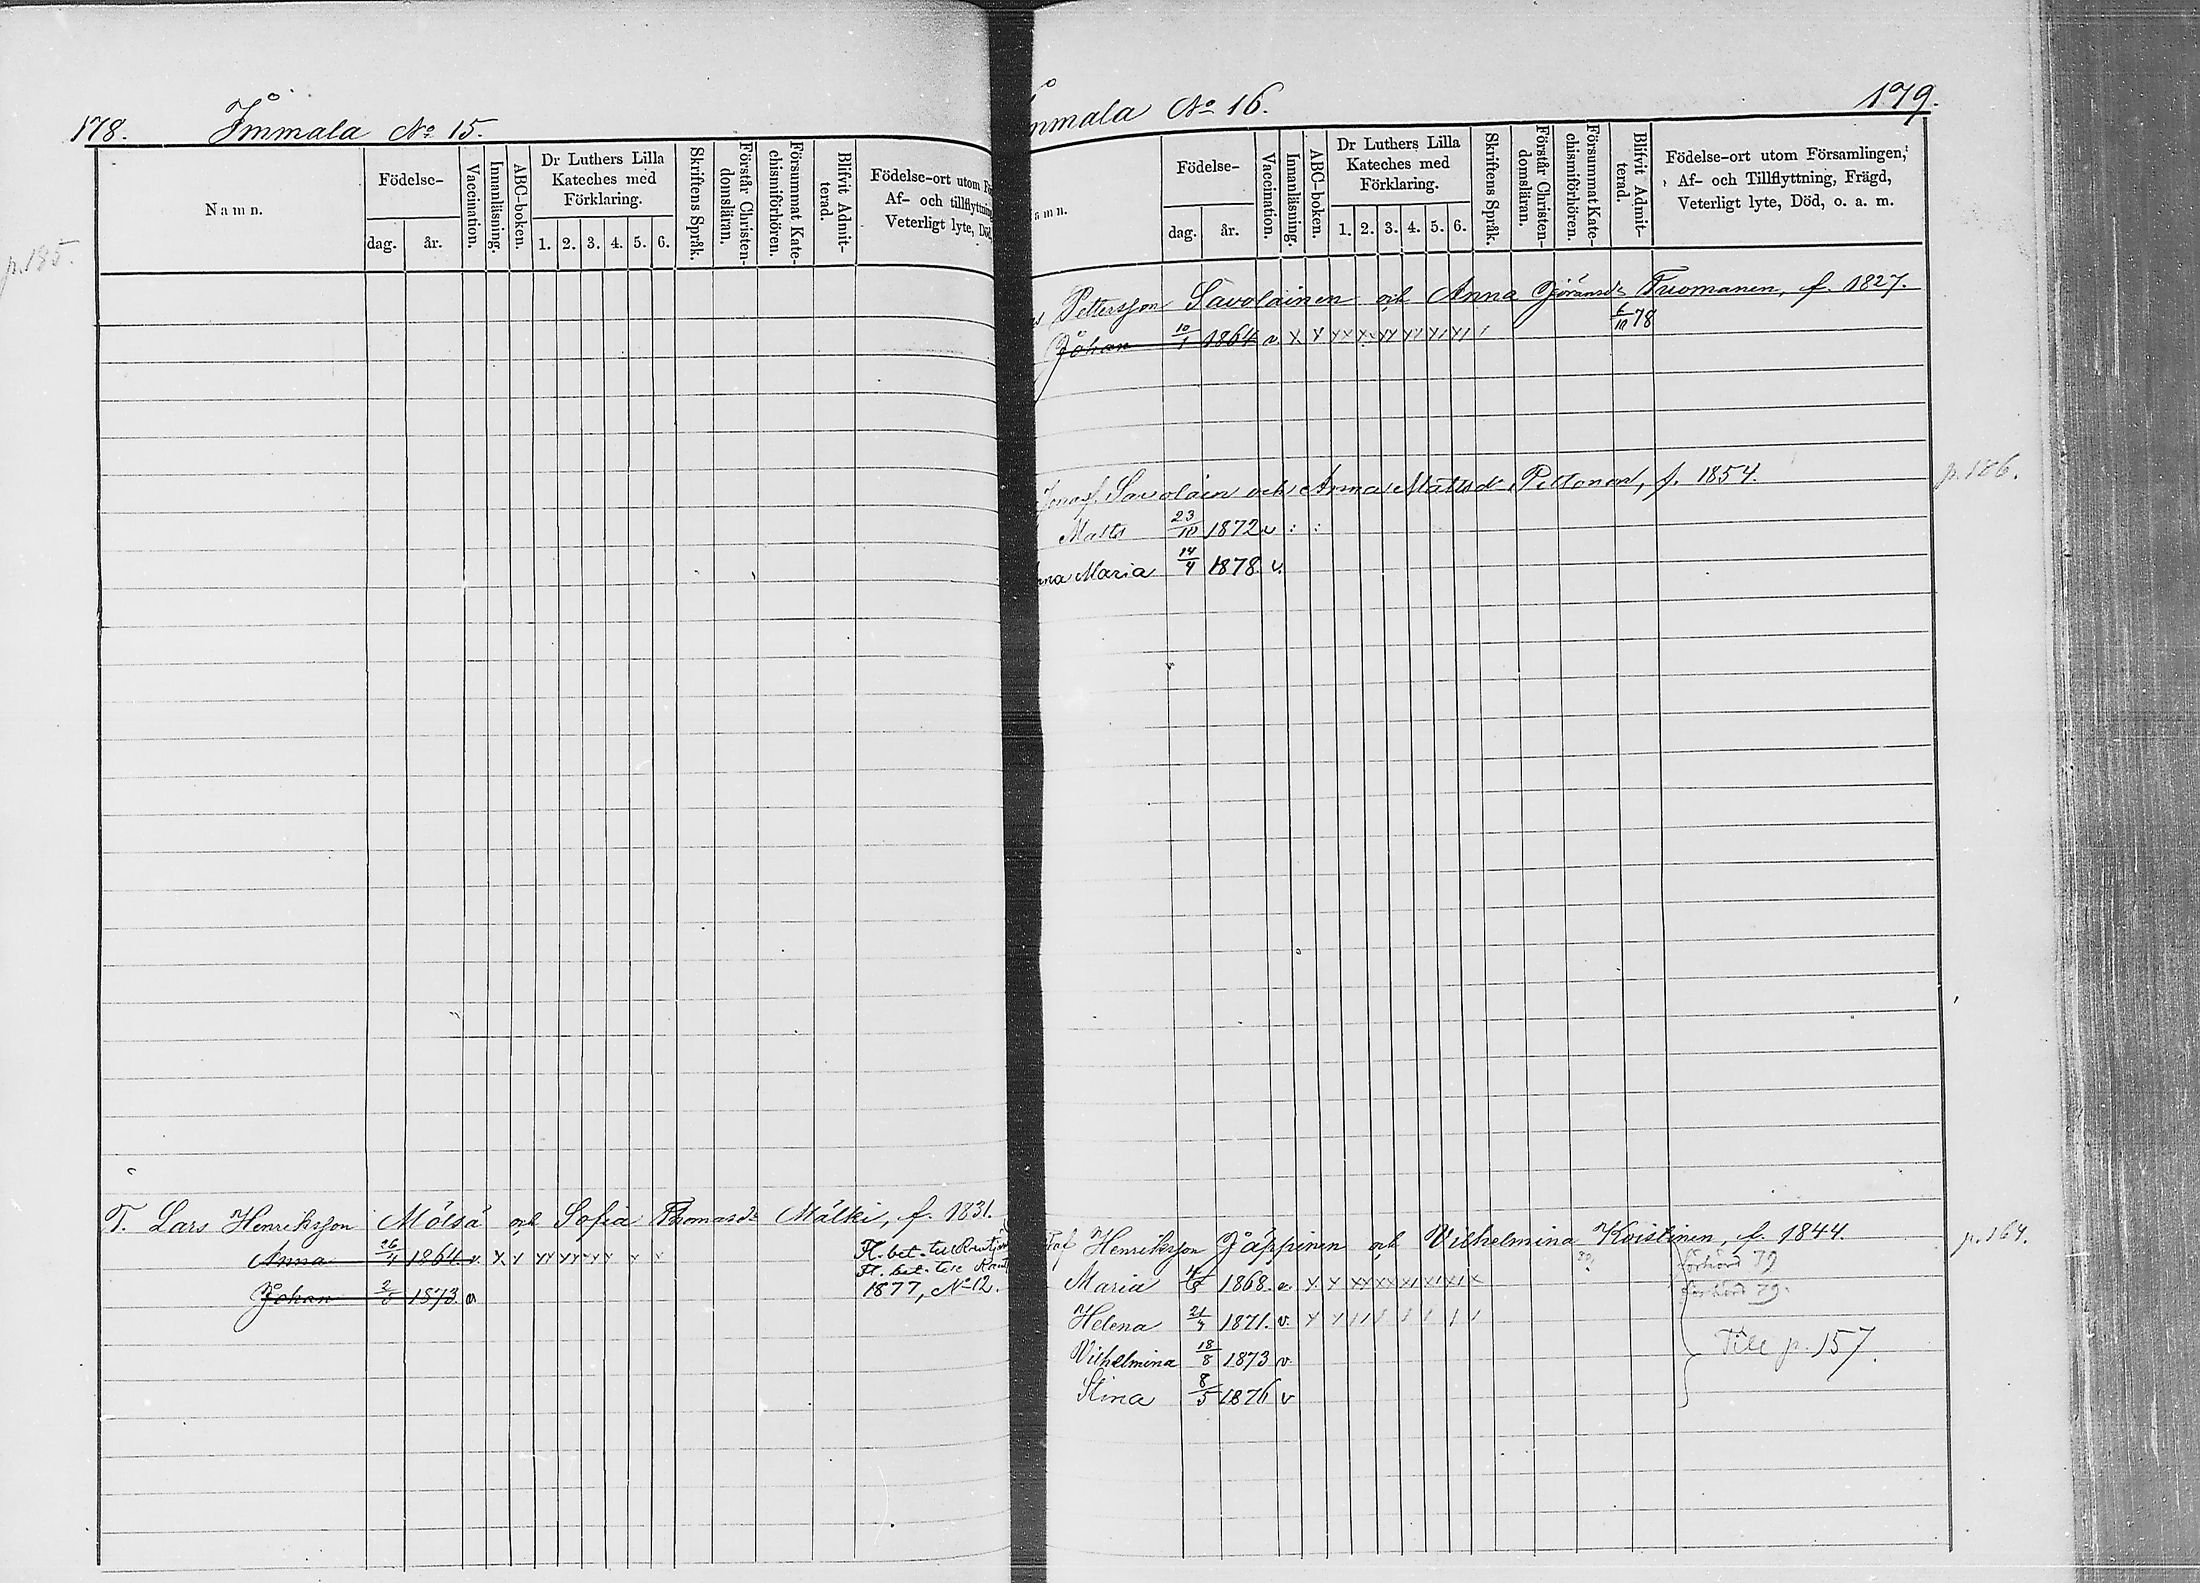 178. Immala No 15.
p. 185.
Namn.
Födelse-
dag. år.
Vaccination.
Innanläsning.
ABC-boken.
Dr Luthers Lilla
Kateches med
Förklaring.
1. 2. 3. 4. 5. 6.
Skriftens Språk.
Förstår Christen-
domsläran.
Försummat Kate-
chismiförhören.
Blifvit Admit-
terad.
Födelse-ort utom
Af- och tillflyttning
Veterligt lyte, Död
T. Lars Henriksson Mölsä och Sofia Thomasdr Mälki, f. 1831.
Anna 26/4 1864 v x x xx xx xx x x Fl. bet. till
Johan 3/8 1873 v Fl. bet. till
1877, No 12.
mmala No 16. 179.
amn.
Födelse-
dag. år.
Vaccination.
Innanläsning.
ABC-boken.
Dr Luthers Lilla
Kateches med
Förklaring.
1. 2. 3. 4. 5. 6.
Skriftens Språk.
Förstår Christen-
domsläran.
Försummat Kate-
chismiförhören.
Blifvit Admit-
terad.
Födelse-ort utom Församlingen,
Af- och Tillflyttning, Frägd,
Veterligt lyte, Död, o. a. m.
Pettersson Savolainen och Anna Göransdr Tuomanen, f. 1827.
Johan 10/1 1864 v x x xx xx xx xx xx xx / 6/10 78
Savolain och Anna Mattsdr Peltonen, f. 1854. p. 186.
Matts 23/10 1872 v : :
nna Maria 14/4 1878 v.
Henriksson Jäppinen och Vilhelmina Koistinen, f. 1844. p. 164.
Maria 1868. v x x xx xx x x x x x förhörd 79
Helena 21/4 1871. v. x x förhörd 79.
Vilhelmina 18/8 1873 v
Till p. 157.
Stina 8/5 1876 v